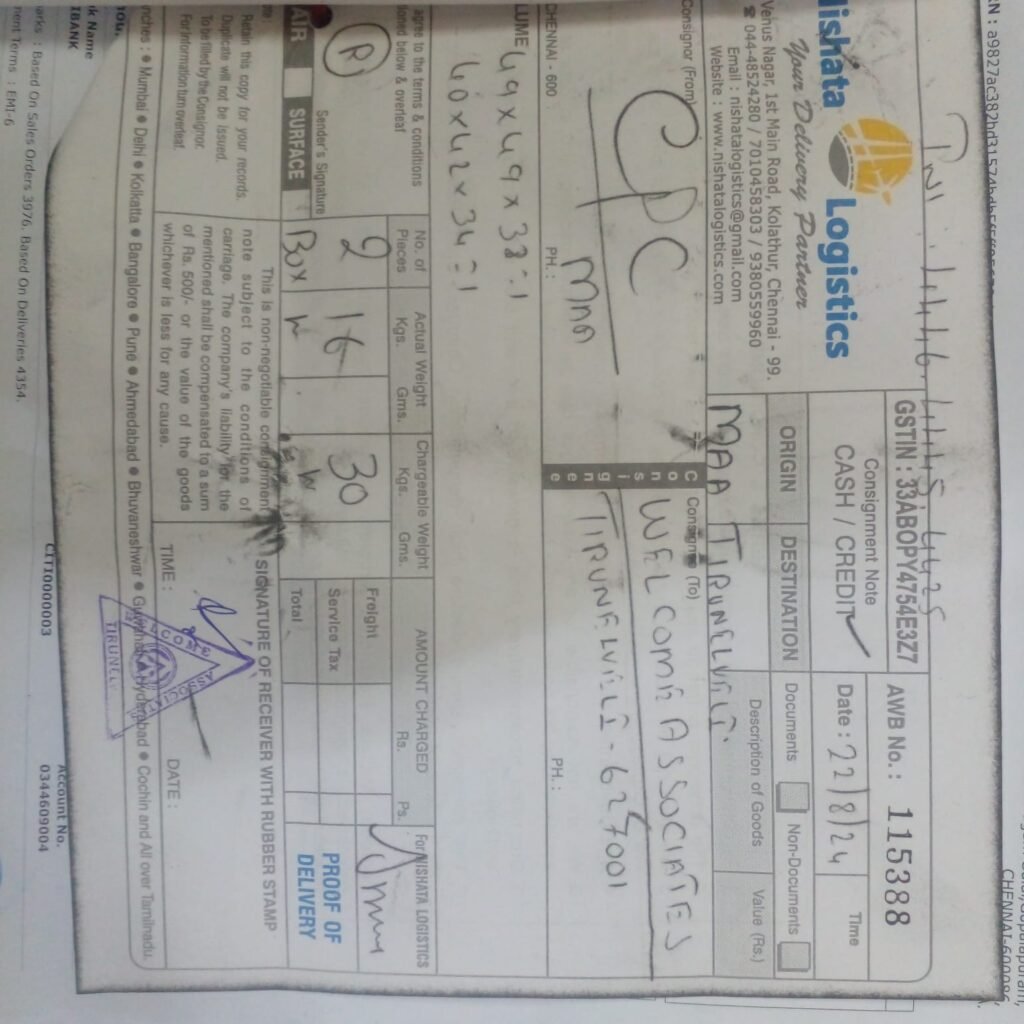 Nishata Logistics
Your Delivery Partner
Venus Nagar, 1st Main Road, Kolathur, Chennai - 99.
☎ 044-48524280 / 7010458303 / 9380559960
Email : nishatalogistics@gmail.com
Website : www.nishatalogistics.com
GSTIN : 33ABOPY4754E3Z7
AWB No. : 115388
Consignment Note
CASH / CREDIT ✓
Date : 22/8/24
Time
ORIGIN
DESTINATION
Documents
Non-Documents
MAA
TIRUNELVELI.
Description of Goods
Value (Rs.)
Consignor (From)
CPC
MAA
CHENNAI - 600
PH. :
Consignee
Consignee (To)
WELCOME ASSOCIATES
TIRUNELVELI - 627001
PH. :
LUME 49 x 49 x 38 = 1
40 x 42 x 34 = 1
agree to the terms & conditions
ioned below & overleaf
Sender's Signature
No. of Pieces
Actual Weight
Kgs. Gms.
Chargeable Weight
Kgs. Gms.
AMOUNT CHARGED
Rs. Ps.
For NISHATA LOGISTICS
2
16
30
Freight
Service Tax
Total
AIR
SURFACE
Box
W
W
PROOF OF DELIVERY
Retain this copy for your records.
Duplicate will not be issued.
To be filled by the Consignor.
For information turn overleaf.
This is non-negotiable consignment
note subject to the conditions of
carriage. The company's liability for the
mentioned shall be compensated to a sum
of Rs. 500/- or the value of the goods
whichever is less for any cause.
SIGNATURE OF RECEIVER WITH RUBBER STAMP
TIME :
DATE :
nches : ● Mumbai ● Delhi ● Kolkatta ● Bangalore ● Pune ● Ahmedabad ● Bhuvaneshwar ● Guwahati ● Hyderabad ● Cochin and All over Tamilnadu.
k Name
IBANK
CITI0000003
Account No.
0344609004
arks : Based On Sales Orders 3976. Based On Deliveries 4354.
nent Terms : EMI-6